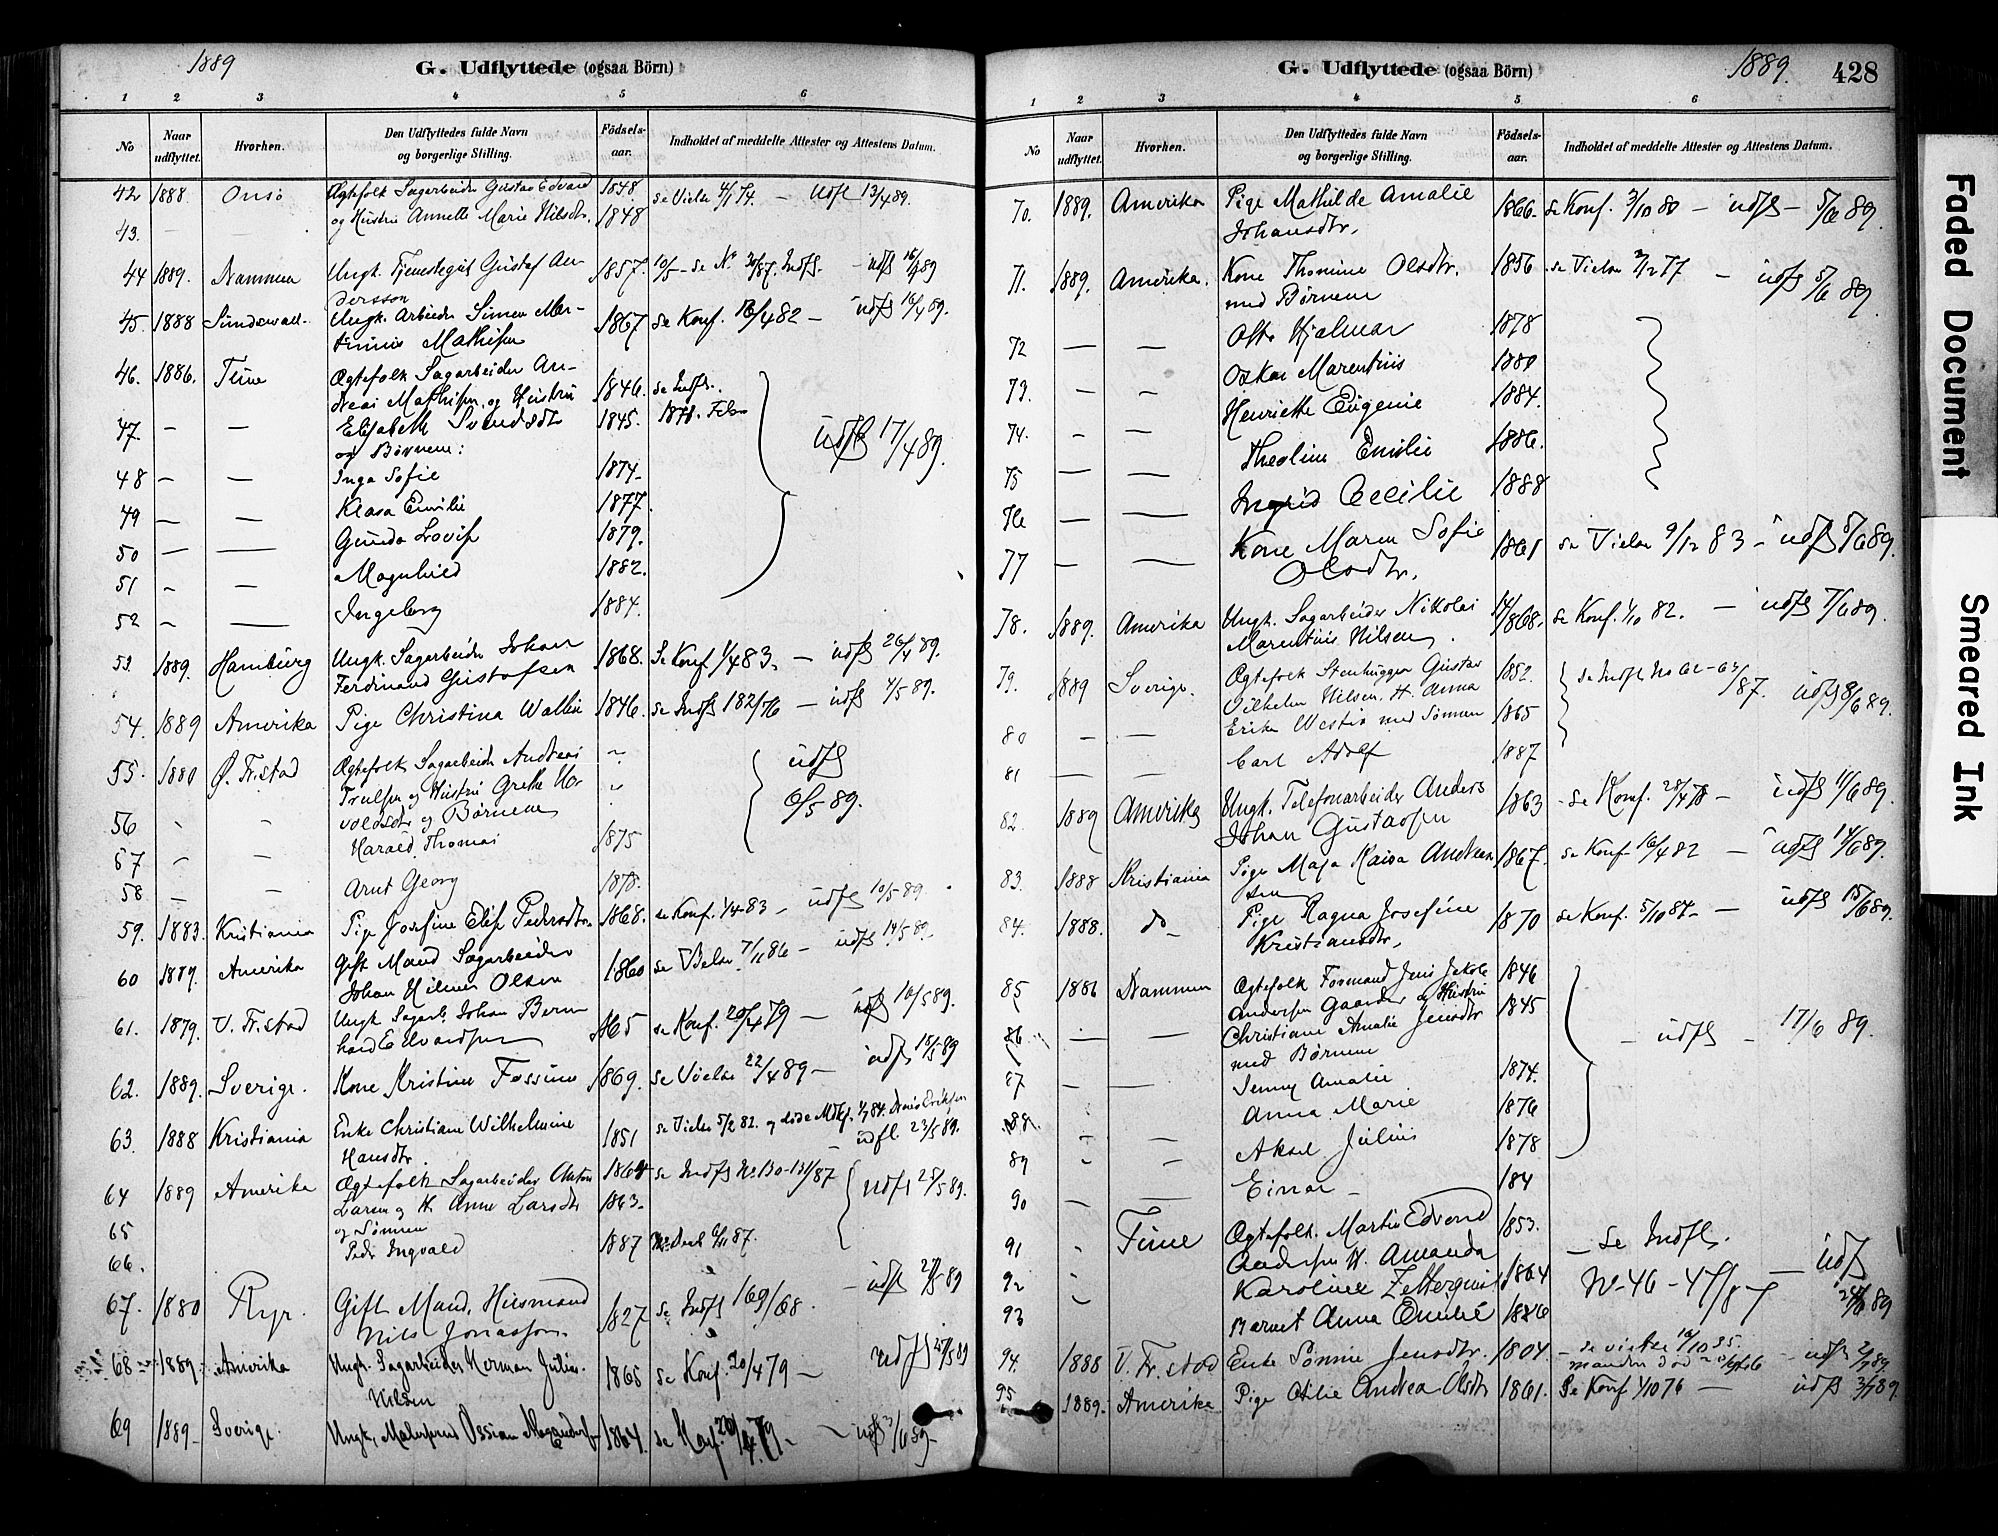 1889
G. Udflyttede (ogsaa Börn)
1 2 3 4 5 6
No
Naar udflyttet.
Hvorhen.
Den Udflyttedes fulde Navn og borgerlige Stilling.
Födsels-aar.
Indholdet af meddelte Attester og Attestens Datum.
42 1888 Onsö Ægtefolk Sagarbeider Gustav Edvard 1848. se Vielse 4/1 74. — Udfl 13/4 89.
43. — — og Hustru Annette Marie Nilsdtr. 1848
44 1889. Drammen Ungk. Tjenestegut Gustaf An- 1857. 10/5 - se No 30/87. Indfl. — udfl 16/4 89
dersson
45. 1888 Sundswall. Ungk. Arbeider Simen Mar- 1867 se Konf. 16/4 82 — udfl 16/4 89.
tinius Mathisen
46. 1886. Tune Ægtefolk Sagarbeider An- 1846. se Indfl.
dreas Mathisen og Hustru
47. — — Elisabeth Svendsdtr 1845. 1871. Febr udfl 17/4 89.
og Børnene:
48 — — Inga Sofie 1874.
49 — — Klara Emilie 1877.
50 — — Gunda Lovise 1879.
51 — — Magnhild 1882.
52 — — Ingeborg 1884.
53. 1889. Hamburg Ungk. Sagarbeider Johan 1868. Se Konf. 1/4 83. — udfl 26/4 89.
Ferdinand Gustafsen
54. 1889 Amerika Pige Christina Wallin 1846. se Indfl 182/76 — udfl 4/5 89.
55. 1880 Ø. Fr.stad Ægtefolk Sagarbeider Andreas — udfl
Trulsen og Hustru Grethe Ha- 6/5 89.
56 — — voldsdtr og Børnene
57 — — Harald Thomas 1875
58 — — Arnt Georg 1878.
59. 1883. Kristiania Pige Josefine Elise Pedersdtr 1868. se Konf. 1/4 83 — udfl 10/5 89.
60 1889. Amerika Gift Mand Sagarbeider 1860 se Vielse 7/11 86 — udfl 14/5 89.
Johan Hilmer Olsen
61. 1879. V. Fr.stad Ungk. Sagarb. Johan Bern 1865 se Konf. 20/4 79 — udfl 16/5 89.
hard Edvardsen
62. 1889. Sverige. Kone Kristine Fossum 1869. se Vielse 22/4 89 — udfl 18/5 89
63. 1888 Kristiania Enke Christiane Wilhelmine 1851 se Vielse 5/2 82. og døde Mdkj. 1/7 84. Denis Eriksen
Hansdtr. udfl. 23/5 89.
64 1889 Amerika Ægtefolk Sagarbeider Anton 1864 se Indfl No 130-131/87 udfl 25/5 89.
65 Larsen og H. Anne Larsdtr 1863.
og Sønnen
66. Peder Ingvald 1887
67. 1880 Rygge Gift Mand, Husmand 1827 se Indfl 169/68. — udfl 27/5 89
Nils Jonassen.
68 1889. Amerika Ungk. Sagarbeider Herman Julius 1865 se Konf. 20/4 79 — udfl 29/5 89
Nilsen
69 1889 Sverige. Ungk. Malersvend Ossian Alexandersen 1864. se Konf. 20/4 79 — udfl 3/6 89
G. Udflyttede (ogsaa Börn)
1889. 428
1 2 3 4 5 6
No
Naar udflyttet.
Hvorhen.
Den Udflyttedes fulde Navn og borgerlige Stilling.
Födsels-aar.
Indholdet af meddelte Attester og Attestens Datum.
70. 1889. Amerika Pige Mathilde Amalie 1866. se Konf. 3/10 80 — udfl — 5/6 89.
Johansdtr.
71. 1889. Amerika. Kone Thomine Olsdtr. 1856 se Vielse 2/12 77 — udfl 5/6 89.
med Børnene
72 — — Otto Hjalmar 1878
73. — — Oskar Marentius 1880
74. — — Henriette Eugenie 1884.
75 — — Theoline Emilie 1886.
76 — — Ingrid Cecilie 1888
77 — — Kone Maren Sofie 1861 se Vielse 9/12 83 — udfl 5/6 89.
Olsdtr.
78. 1889. Amerika Ungk. Sagarbeider Nikolai 14/1868. se Konf. 1/10 82. — udfl 7/6 89.
Marentius Nilsen.
79. 1889 Sverige. Ægtefolk Stenhugger Gustav 1852. se Indfl No 62-63/87. udfl 8/6 89.
Vilhelm Nilsen. H. Anna
80 — — Erika Westin med Sønnen 1865
81 — — Carl Adolf 1887
82. 1889 Amerika Ungk. Telefonarbeider Anders 1863 - se Konf. 28/4 78 — udfl 11/6 89.
Johan Gustavsen
83. 1888 Kristiania Pige Maja Kaisa Andrea- 1867. se Konf. 16/4 82 — udfl 14/6 89.
sen
84. 1888. do Pige Ragna Josefine 1870 se Konf. 5/10 84 — udfl 15/6 89.
Kristiansdtr.
85 1886 Drammen Ægtefolk Formand Jens Jakob 1846
Andersen Gaarder og Hustru 1845
86 — — Christiane Amalie Jensdtr — udfl — 17/6 89.
med Børnene
87 — — Jenny Amalie 1874.
88 Anna Marie 1876
89 — — Aksel Julius 1878
90 — — Einar — 184
91 — Tune Ægtefolk Martin Edvard 1853. — se Indfl.
92 — Andersen H. Amanda
Karoline Zettergren 1864 No 46-47/87 — udfl
93 Barnet Anna Emilie 1886 24/6 89
94. 1888 V. Fr.stad Enke Sønnie Jensdtr. 1804 — se vielse 16/10 35. — udfl 2/7 89.
manden død
95 1889. Amerika Pige Otilie Andrea Olsdtr 1861. Se Konf 1/10 76 — udfl 3/7 89.
Faded Document
Smeared Ink